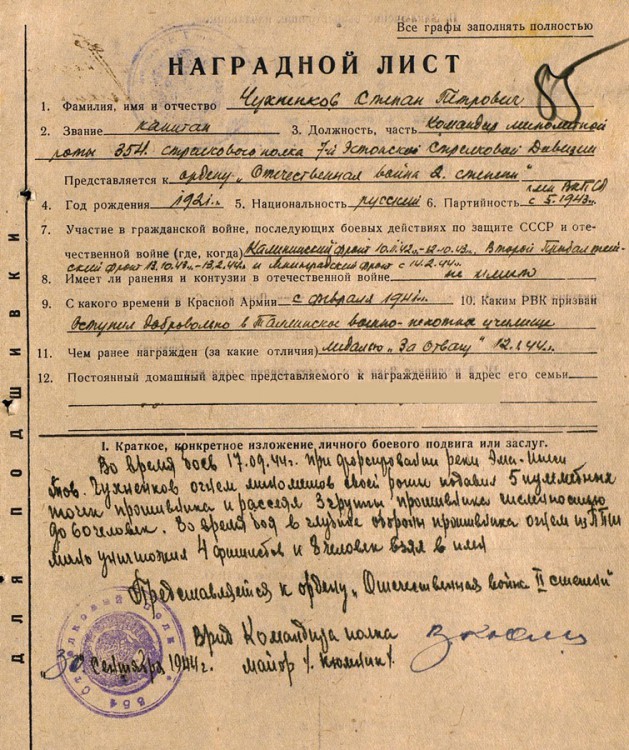 Все графы заполнять полностью
НАГРАДНОЙ ЛИСТ
85
1. Фамилия, имя и отчество Чухненков Степан Петрович
2. Звание капитан 3. Должность, часть Командир минометной
роты 354 стрелкового полка 7й Эстонской Стрелковой Дивизии
Представляется к ордену „Отечественная война 2. степени"
член ВКП(б)
4. Год рождения 1921г. 5. Национальность русский 6. Партийность с 5.1943г.
7. Участие в гражданской войне, последующих боевых действиях по защите СССР и оте-
чественной войне (где, когда) Калининский фронт Второй Прибалтий-
ский фронт и Ленинградский фронт с 14.2.44г.
8. Имеет ли ранения и контузии в отечественной войне не имеет
9. С какого времени в Красной Армии с февраля 1941г. 10. Каким РВК призван
Вступил добровольно в Таллинское военно-пехотное училище
11. Чем ранее награжден (за какие отличия) медалью „За отвагу" 12.1.44г.
12. Постоянный домашный адрес представляемого к награждению и адрес его семьи
I. Краткое, конкретное изложение личного боевого подвига или заслуг.
Во время боев 17.09.44г. при форсировании реки Эма-Йыги
тов. Чухненков огнем минометов своей роты подавил 5 пулеметных
точек противника и рассеял 3 группы противника численностью
до 60 человек. Во время боя в глубине обороны противника огнем из ППШ
лично уничтожил 4 фашистов и 8 человек взял в плен
Представляется к ордену „Отечественная война II степени"
Врид Командира полка
„30" Сентября 1944г. майор /. Кюммик /.
ДЛЯ ПОДШИВКИ
354 Стрелковый полк